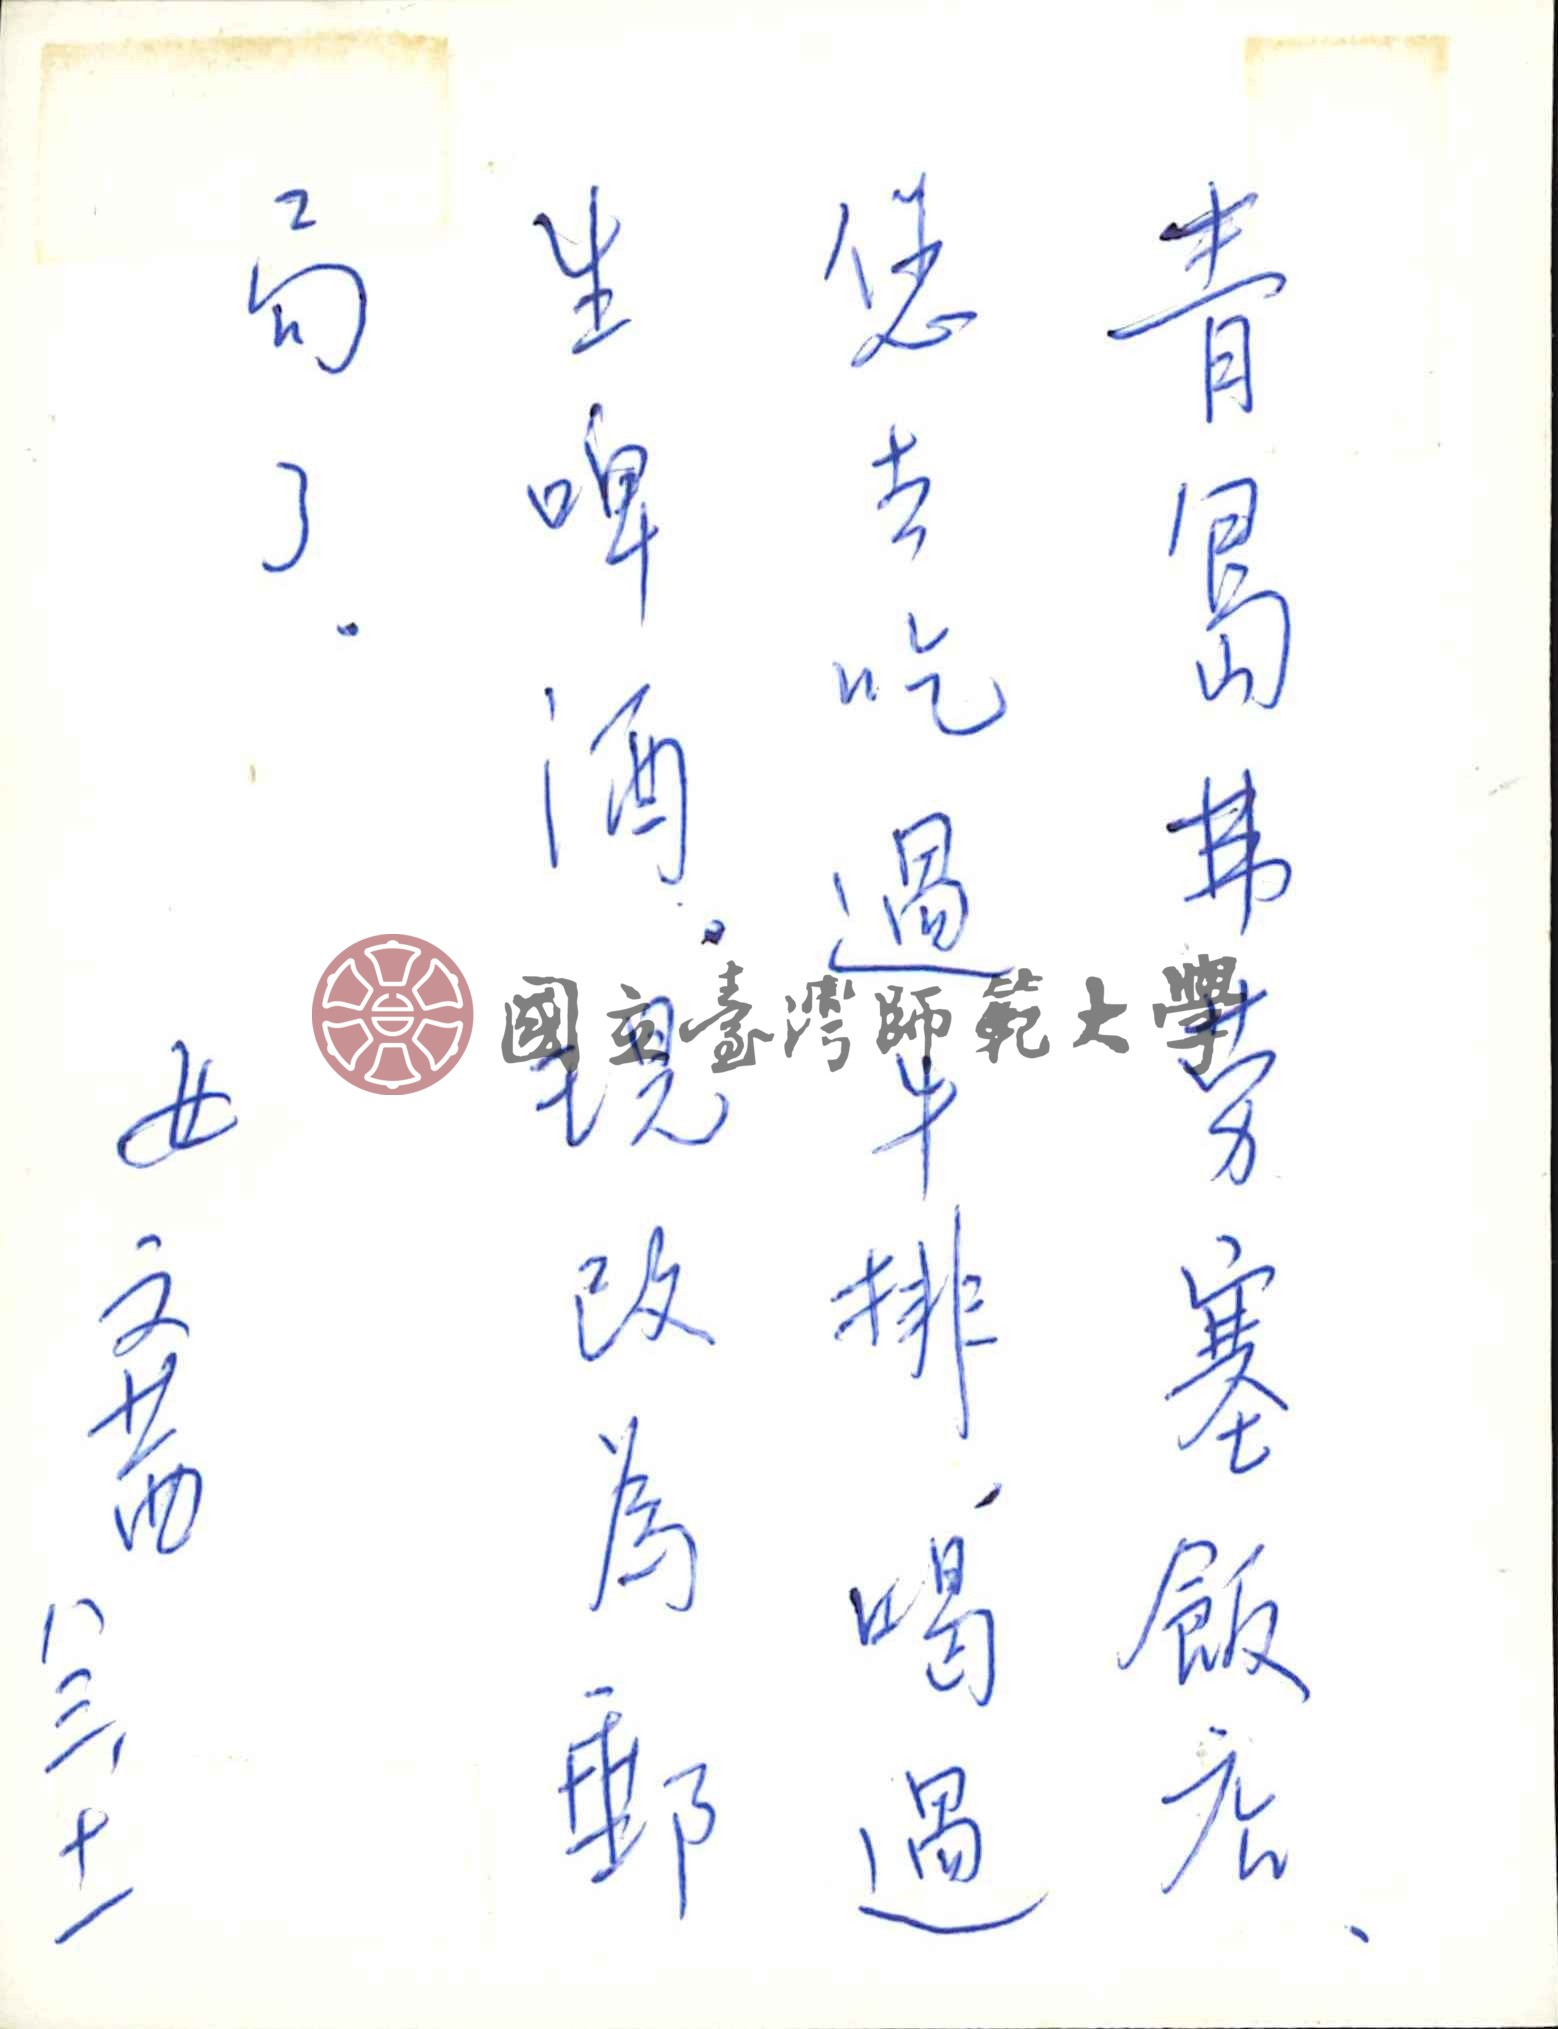 青島弗劳塞飯店、
您去吃過牛排、喝過
生啤酒.現改為郵
局了.
女文茜 八三、十一
國立臺灣師範大學